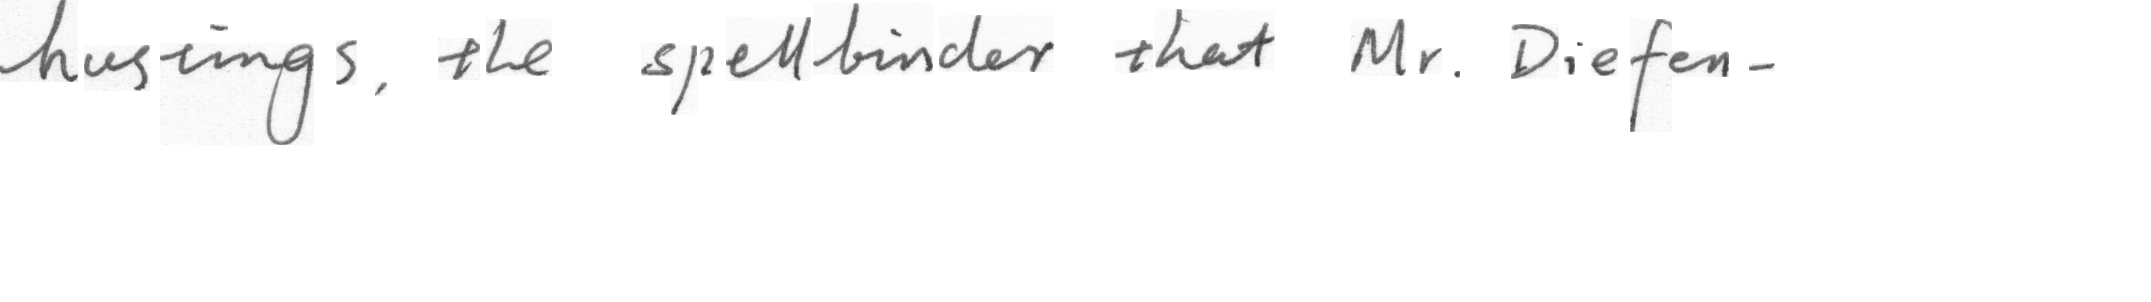 hustings, the spellbinder that Mr. Diefen-